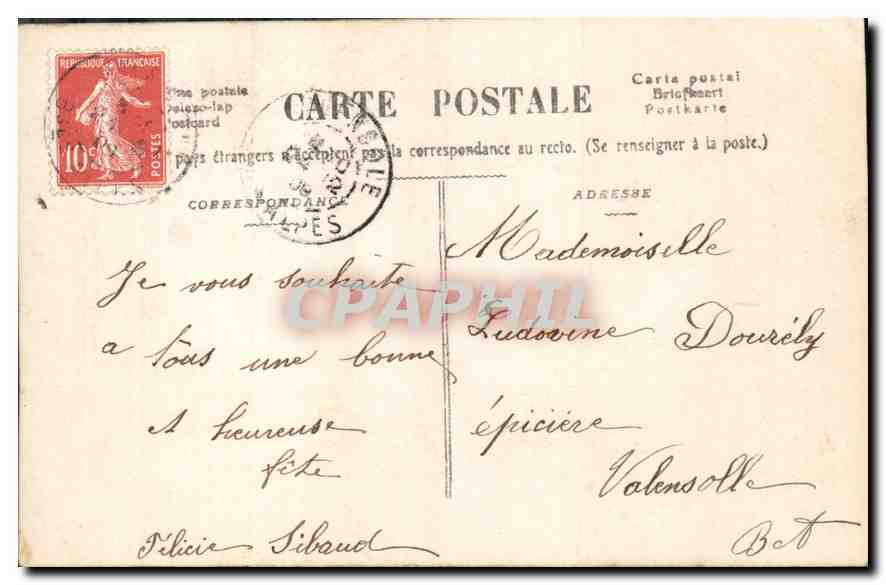 REPUBLIQUE FRANÇAISE
10c POSTES
postale
Postcard
CARTE POSTALE
Carte postal
Briefkaart
Postkarte
pays étrangers n'acceptent pas la correspondance au recto. (Se renseigner à la poste.)
CORRESPONDANCE
ADRESSE
ALPES
CPAPHIL
Je vous souhaite
a tous une bonne
et heureuse
fête
Félicie Sibaud
Mademoiselle
Ludovine Dourély
épicière
Valensolle
B A